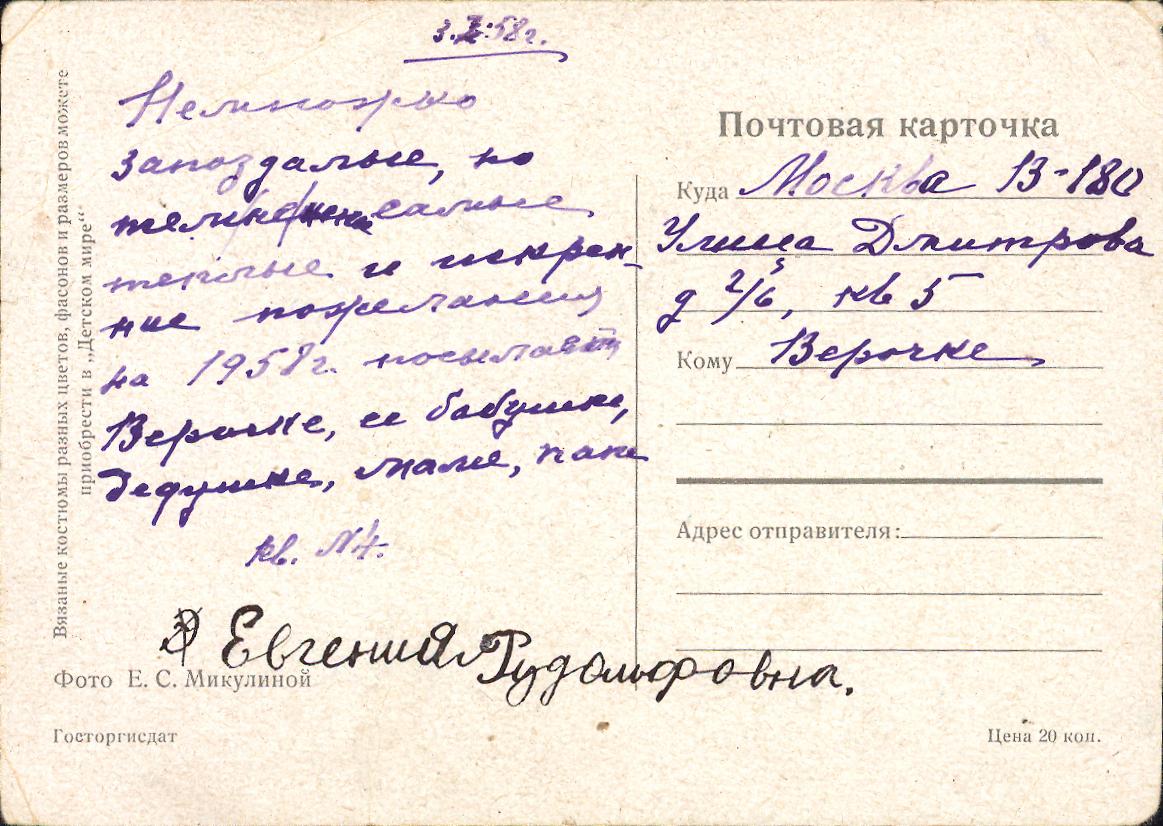 3.I.58г.
Немножко
запоздалые, но
самые
теплые и искрен-
ние пожелания
на 1958г. посылает
Верочке, ее бабушке,
дедушке, маме, папе
кв. №4.
Евгения Рудольфовна.
Вязаные костюмы разных цветов, фасонов и размеров можете
приобрести в „Детском мире“
Фото Е. С. Микулиной
Госторгиздат
Почтовая карточка
Куда Москва В-180
Улица Димитрова
д 2/6, кв 5
Кому Верочке
Адрес отправителя:
Цена 20 коп.